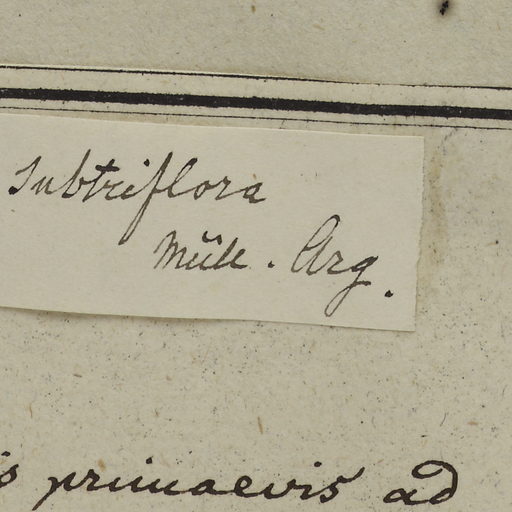 subtriflora
Müll. Arg.
is primaevis ad